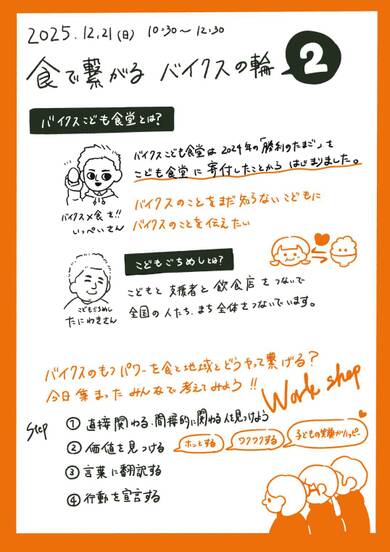 2025.12.21(日) 10:30〜12:30
食で繋がる バイクスの輪 2
バイクスこども食堂とは?
バイクスこども食堂は 2024年の「勝利のたまご」を
こども食堂に寄付したことから はじまりました。
バイクス×食を!!
いっぺいさん
バイクスのことをまだ知らないこどもに
バイクスのことを伝えたい
こどもごちめしとは?
こどもと支援者と飲食店をつないで
全国の人たち、まち全体をつないでいます。
こどもごちめし
たにわきさん
バイクスのもつパワーを食と地域とどうやって繋げる?
今日集まったみんなで考えてみよう!!
Work shop
Step
① 直接関わる、間接的に関わる人を見つけよう
② 価値を見つける
ホッとする
ワクワクする
子どもの笑顔がハッピー
③ 言葉に翻訳する
④ 行動を宣言する